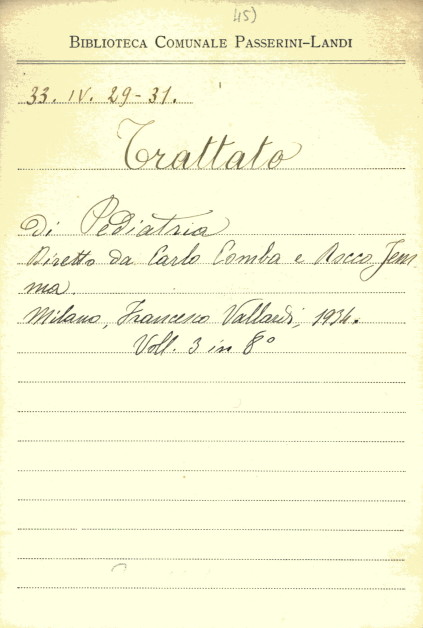 45)
BIBLIOTECA COMUNALE PASSERINI-LANDI
33. IV. 29-31.
Trattato
di Pediatria
Diretto da Carlo Comba e Rocco Jem
ma.
Milano, Francesco Vallardi, 1934.
Voll. 3 in 8°